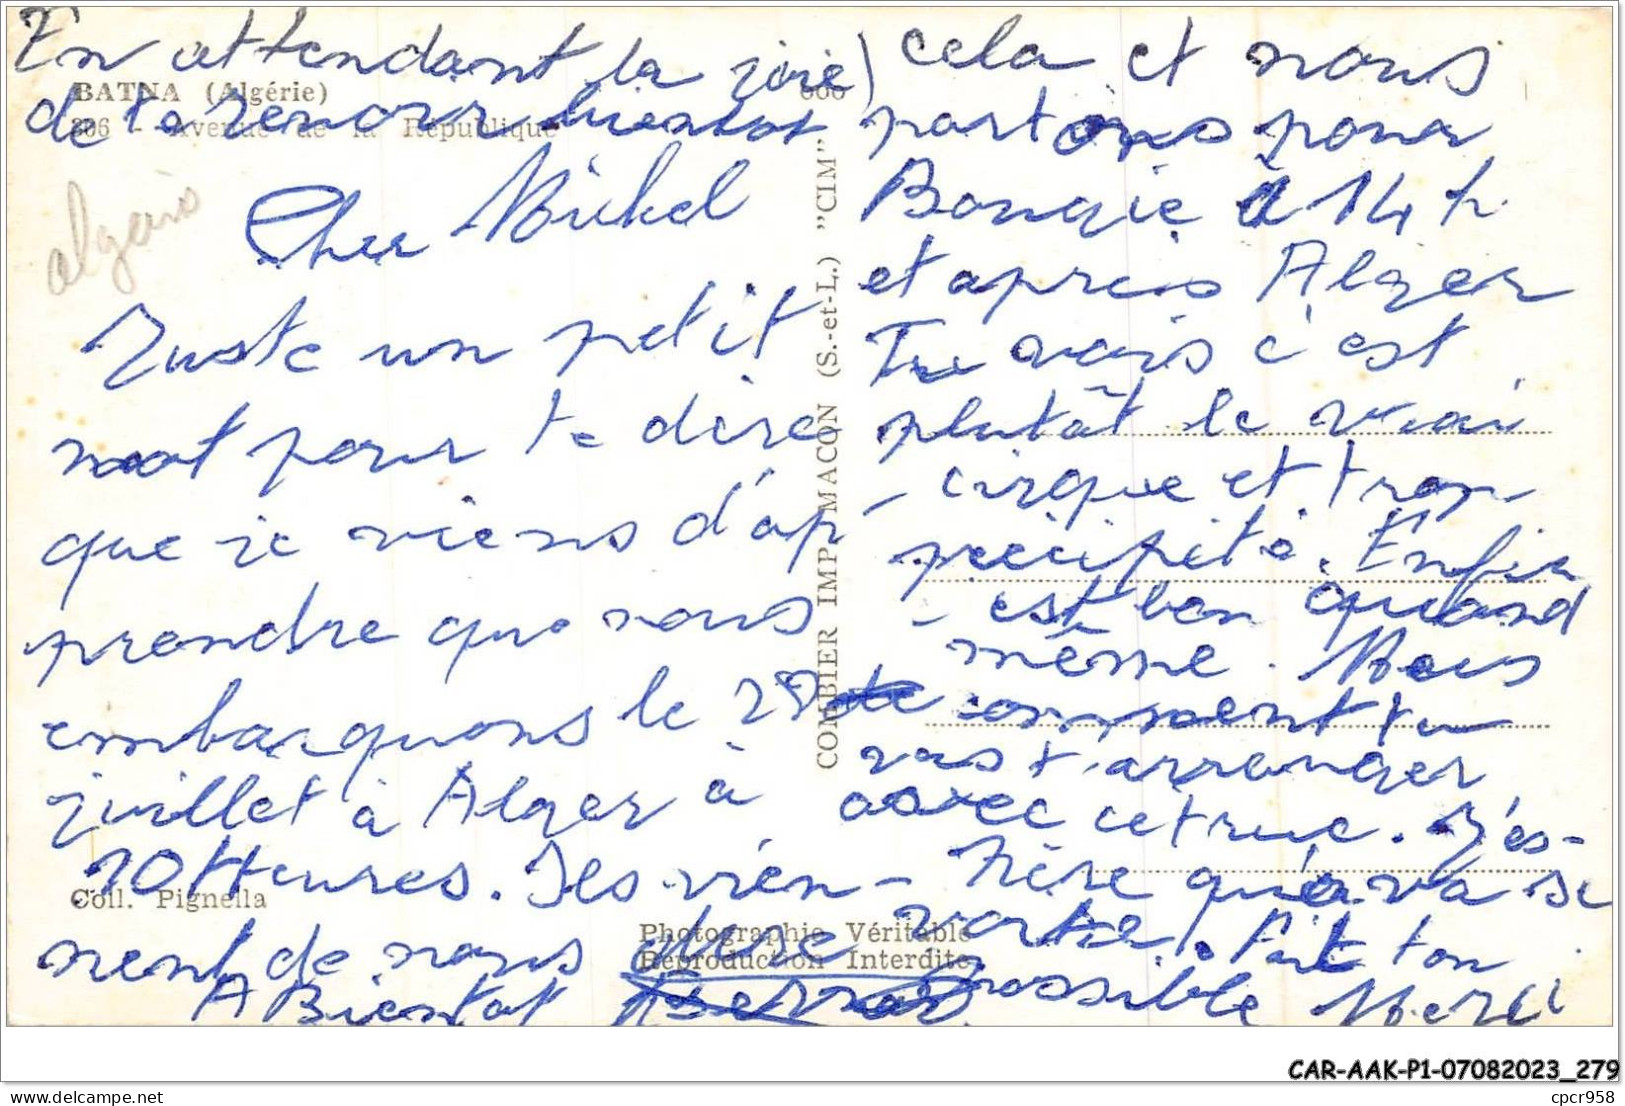 En attendant la joie
de te revoir bientot
BATNA (Algérie)
806 - Avenue de la République
algerie
Cher Michel
Juste un petit
mot pour te dire
que je viens d'ap-
prendre que nous
embarquons le 27
juillet à Alger à
10 Heures. Ils vien-
nent de nous dire
A Bientot Bernard
cela et nous
partons pour
Bougie à 14 h
et après Alger
Tu vois c'est
plutôt le vrai
cirque et trop
précipité. Enfin
est bon quand
même. Mais
comment tu
vas t'arranger
avec ce truc. J'es-
père que ça va se
. Fait ton
possible Merci
COMBIER IMP. MACON (S.-et-L.) "CIM"
Coll. Pignella
Photographie Véritable
Reproduction Interdite
CAR-AAK-P1-07082023_279
delcampe.net
cpcr958